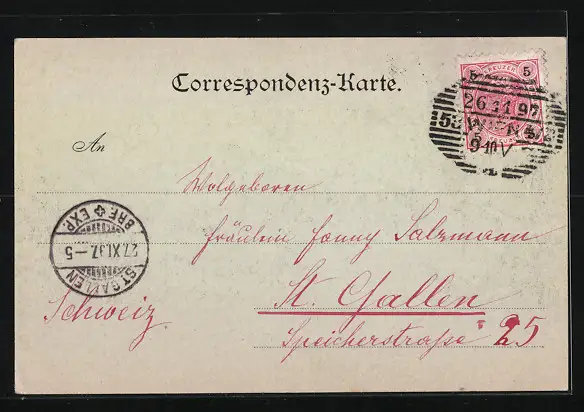 Correspondenz-Karte.
KREUZER
5 5
26 11 97
53 WIEN 5/2
9-10 V
1
An
Wolgeboren
Fräulein Fanny Salzmann
BRF. EXP.
27.XI.97.-5
ST. GALLEN
St. Gallen
Schweiz
Speicherstraße 25